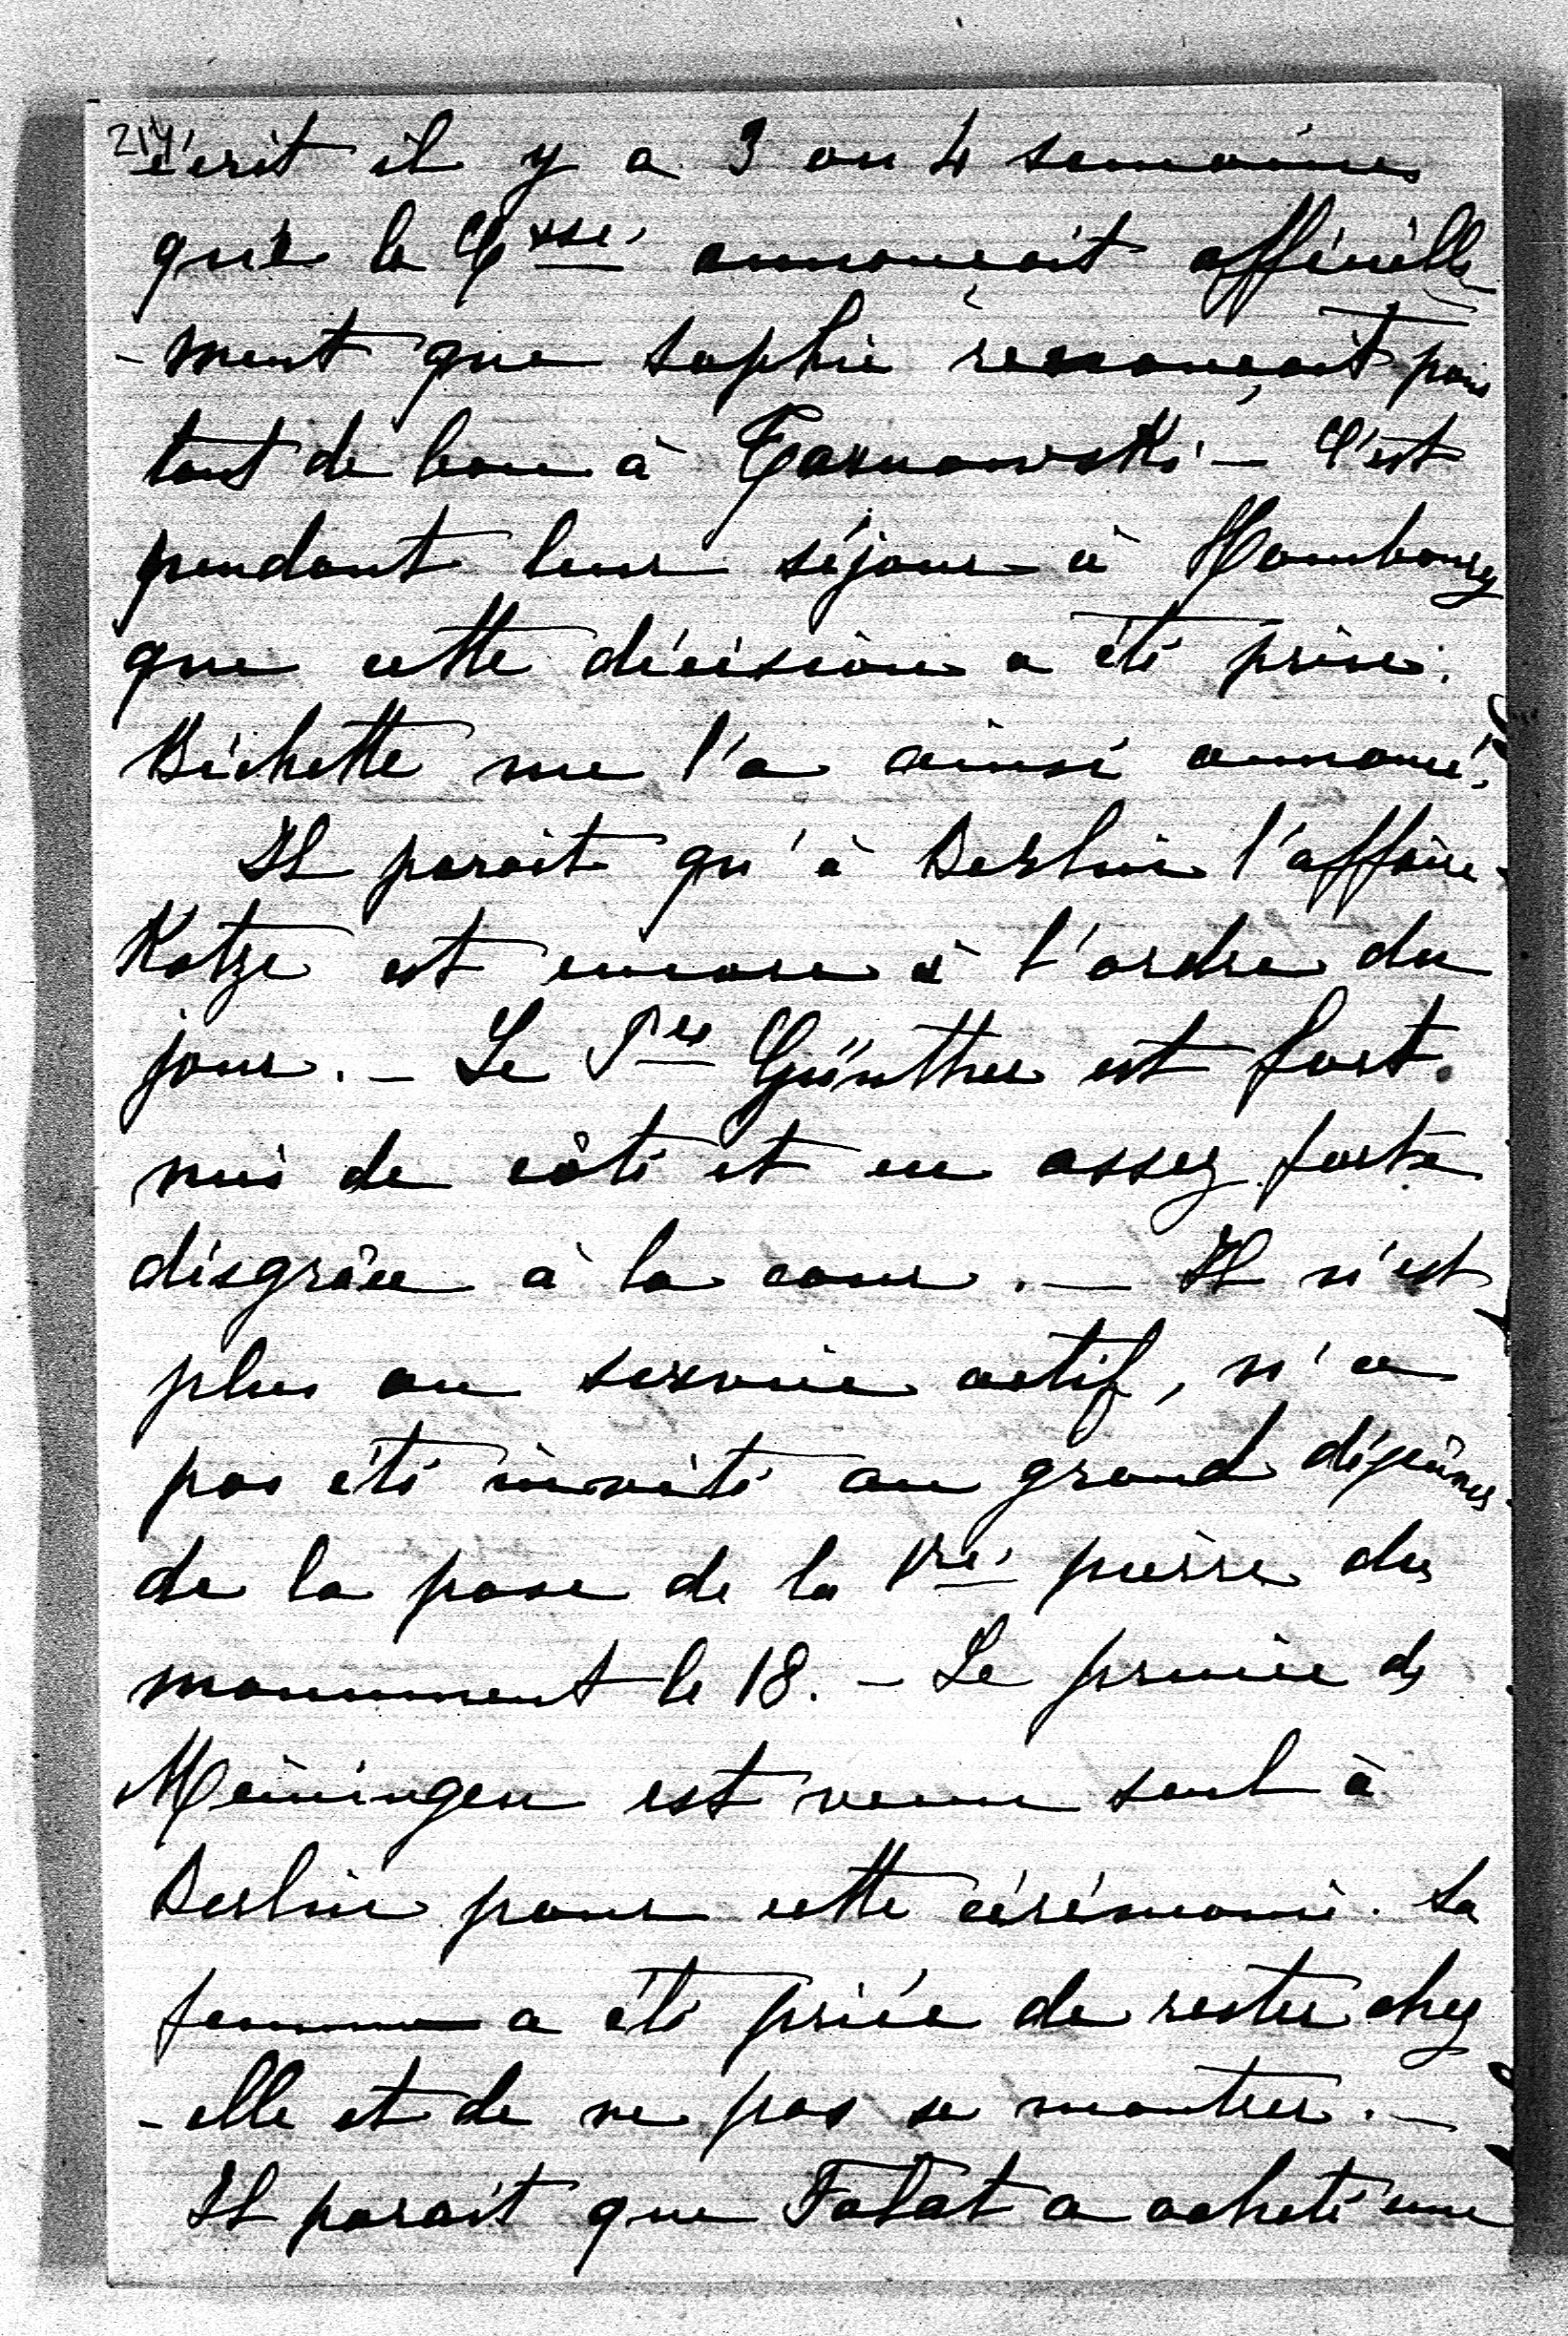 214
écrit il y a 3 ou 4 semaines
que la Csse annonçait officielle
-ment que Sophie renonçait pour
tout de bon à Tarnowski – C'est
pendant leur séjour à Hombourg
que cette décision a été prise.
Bichette me l'a ainsi annoncé.
Il parait qu'à Berlin l'affaire
Kotze est encore à l'ordre du
jour. – Le Pce Günther est fort
mis de côté et en assez forte
disgrâce à la cour. – Il n'est
plus au service actif, n'a
pas été invité au grand déjeûner
de la pose de la 1re pierre du
monument le 18. – Le prince de
Meiningen est venu seul à
Berlin pour cette cérémonie. Sa
femme a été priée de rester chez
-elle et de ne pas se montrer. –
Il parait que Falat a acheté une